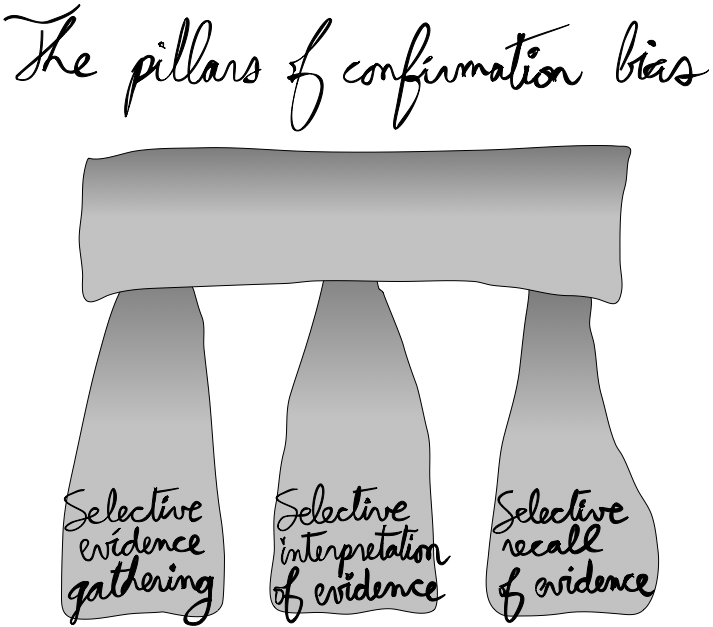 The pillars of confirmation bias
Selective
evidence
gathering
Selective
interpretation
of evidence
Selective
recall
of evidence